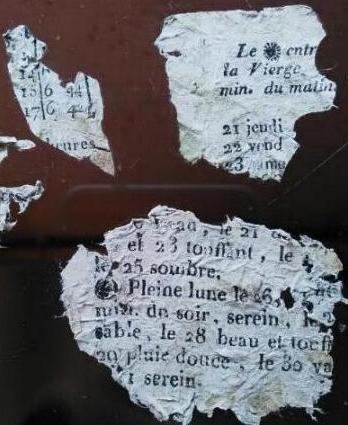 15 6 44
17 6 42
heures
Le entr
la Vierge
min. du matin
21 jeudi
22 vend
23
le 21
et 23 touffant, le
le 25 sombre.
Pleine lune le 26,
min. du soir, serein, le
sable, le 28 beau et touff
29 pluie douce, le 30 va
serein.